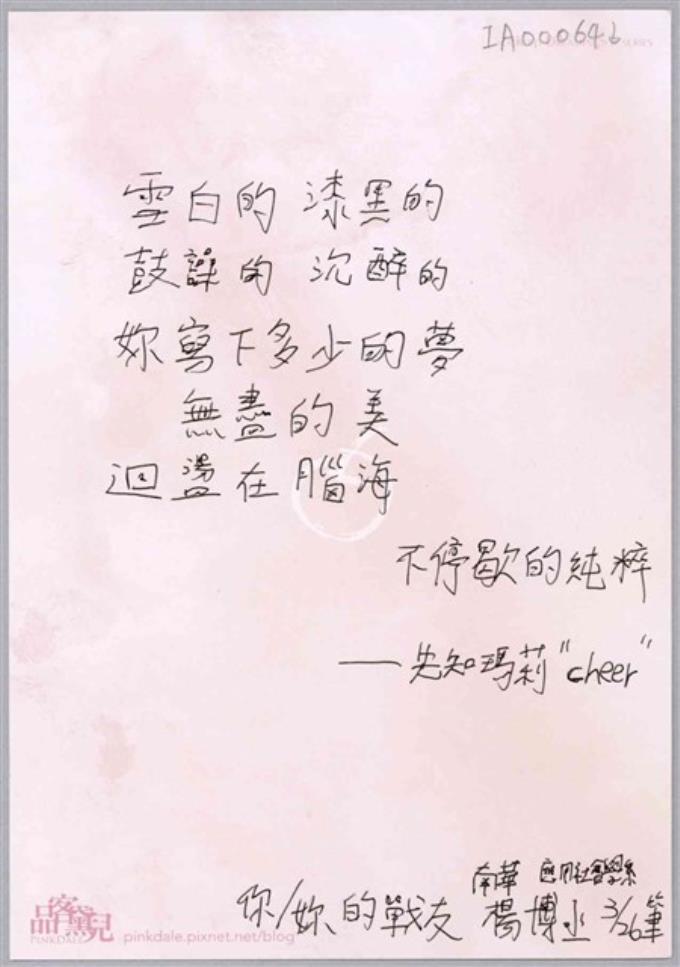 IA0000646
雪白的 漆黑的
鼓譟的 沉醉的
妳寫下多少的夢
無盡的美
迴盪在腦海
不停歇的純粹
——先知瑪莉"cheer"
南華 應用社會學系
你/妳的戰友 楊博 3/26筆
品客黛兒
PINKDALE pinkdale.pixnet.net/blog